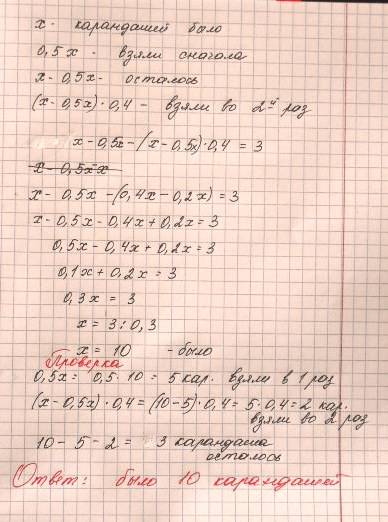 x - карандашей было
0,5x - взяли сначала
x - 0,5x - осталось
(x - 0,5x) · 0,4 - взяли во 2й раз
x - 0,5x - (x - 0,5x) · 0,4 = 3
x - 0,5x - x
x - 0,5x - (0,4x - 0,2x) = 3
x - 0,5x - 0,4x + 0,2x = 3
0,5x - 0,4x + 0,2x = 3
0,1x + 0,2x = 3
0,3x = 3
x = 3 : 0,3
x = 10 - было
Проверка
0,5x = 0,5 · 10 = 5 кар. взяли в 1 раз
(x - 0,5x) · 0,4 = (10 - 5) · 0,4 = 5 · 0,4 = 2 кар.
взяли во 2 раз
10 - 5 - 2 = 3 карандаша
осталось
Ответ: было 10 карандашей